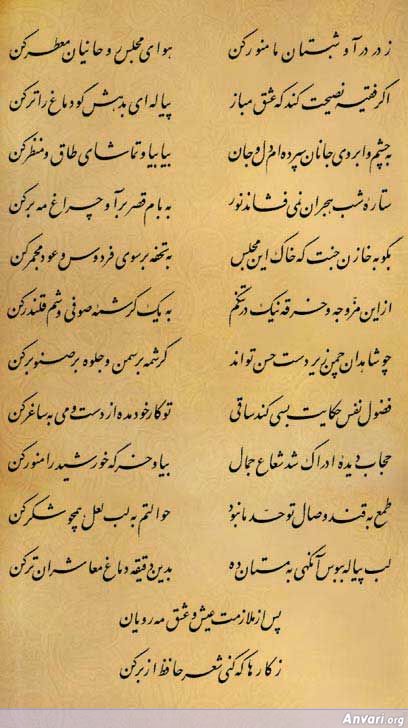 ز در درآ و شبستان ما منور کن هوای مجلس روحانیان معطر کن
اگر فقیه نصیحت کند که عشق مباز پیاله ای بدهش گو دماغ را تر کن
به چشم و ابروی جانان سپرده ام دل و جان بیا بیا و تماشای طاق و منظر کن
ستاره شب هجران نمی فشاند نور به بام قصر برآ و چراغ مه بر کن
بگو به خازن جنت که خاک این مجلس به تحفه بر سوی فردوس و عود مجمر کن
از این مزوجه و خرقه نیک در تنگم به یک کرشمه صوفی وشم قلندر کن
چو شاهدان چمن زیر دست حسن تواند کرشمه بر سمن و جلوه بر صنوبر کن
فضول نفس حکایت بسی کند ساقی تو کار خود مده از دست و می به ساغر کن
حجاب دیده ادراک شد شعاع جمال بیا و خرگه خورشید را منور کن
طمع به قند وصال تو حد ما نبود حوالتم به لب لعل همچو شکر کن
لب پیاله ببوس آنگهی به مستان ده بدین دقیقه دماغ معاشران تر کن
پس از ملازمت عیش و عشق مه رویان
ز کارها که کنی شعر حافظ از بر کن
Anvari.org